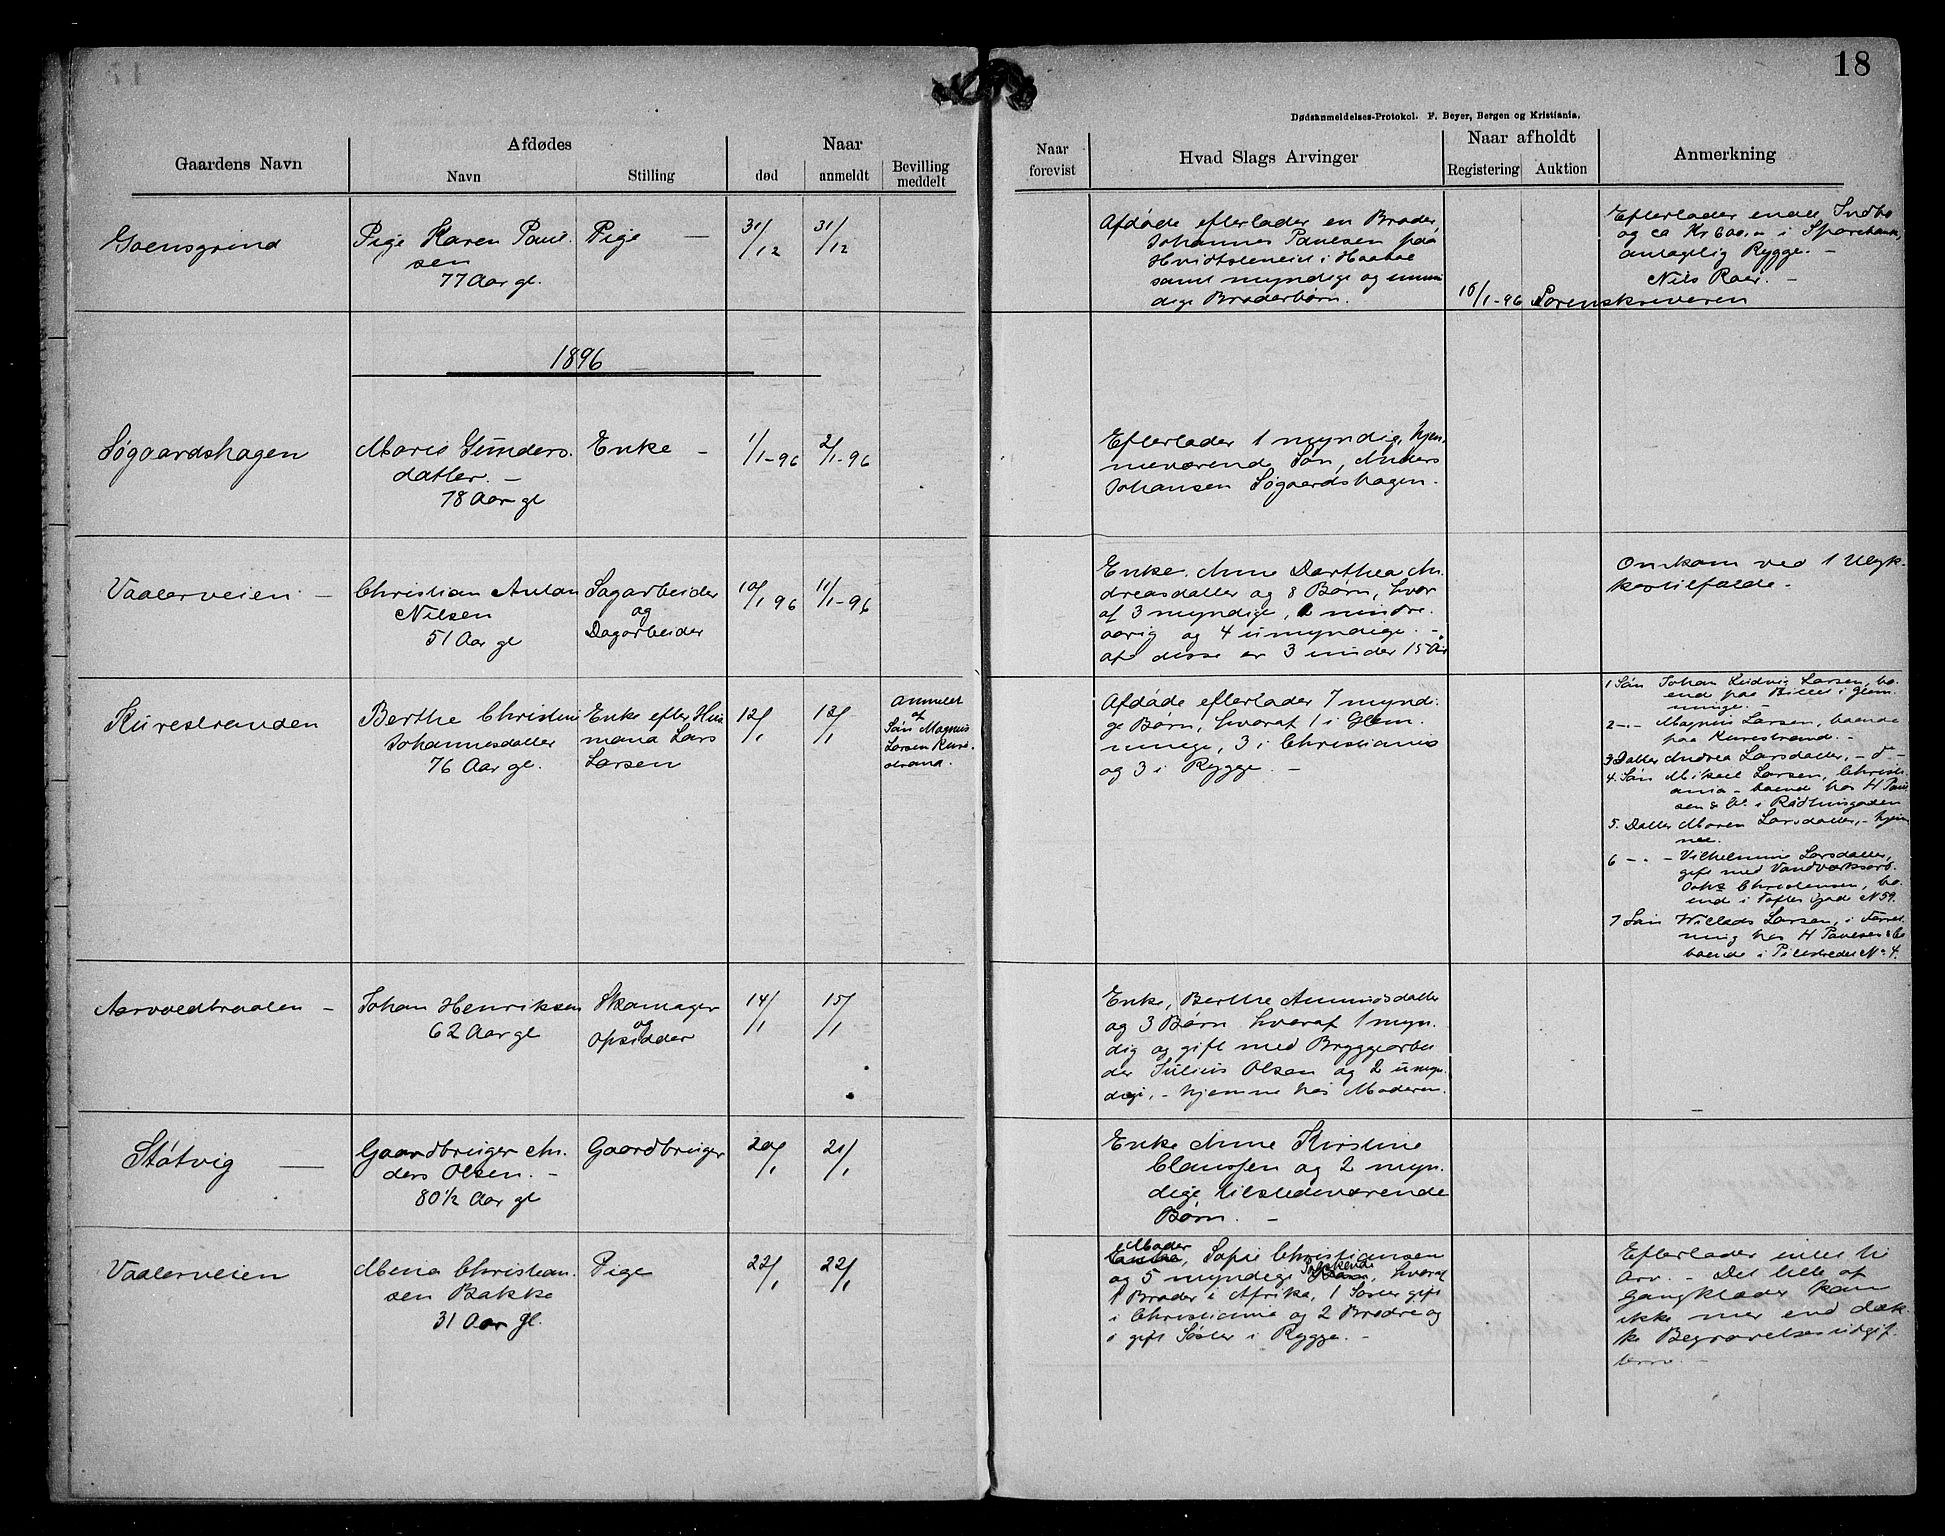 18
Dødsanmeldelses-Protokol. F. Beyer, Bergen og Kristiania.
Gaardens Navn
Afdødes
Navn
Stilling
Naar
død
anmeldt
Bevilling
meddelt
Naar
forevist
Hvad Slags Arvinger
Naar afholdt
Registering
Auktion
Anmerkning
Goensgrind
Pige Karen Paul-
sen
77 Aar gl.
Pige —
31/12
31/12
Afdøde efterlader en Broder,
Johannes Paulsen paa
Hvidtsteneiet i Haabøl
samt myndige og umyn
dige Broderbørn.
16/1-96
Sorenskriveren
Efterlader endel Indbo
og ca Kr 600,00 i Sparebank,
antagelig Rygge. —
Nils Roer. —
1896
Søgaardshagen
Maris Gunders-
datter. —
78 Aar gl
Enke —
1/1-96
2/1-96
Efterlader 1 myndig, hjem
meværende Søn, Anders
Johansen Søgaardshagen.
Vaalerveien —
Christian Anton
Nilsen
51 Aar gl
Sagarbeider
og
Dagarbeider
10/1 96
11/1-96
Enke. Anne Dorthea An-
dreasdatter og 8 Børn, hvor
af 3 myndige, 1 mindre-
aarig og 4 umyndige. —
af disse er 3 under 15 Aar
Omkom ved 1 Ulyk-
kestilfælde. —
Kurestranden
Berthe Christine
Johannesdatter
76 Aar gl.
Enke efter Hus
mand Lars
Larsen
12/1
13/1
anmeldt
af
Søn Magnus
Larsen Kure-
strand.
Afdøde efterlader 7 myndi-
ge Børn, hvoraf 1 i Glem-
minge, 3 i Christiania
og 3 i Rygge. —
1 Søn Johan Ludvig Larsen, bo-
ende paa Billet i Glem-
minge. —
2 — " — Magnus Larsen, boende
paa Kurestrand. —
3 Datter Andrea Larsdatter, — do —
4. Søn Mikael Larsen, Christi-
ania — boende hos H Paul
sen & Co. i Rådhusgaden
5. Datter Maren Larsdatter, — hjem
me.
6 — " — Vilhelmine Larsdatter,
gift med Vandværksarb.
Johs Christensen, bo-
ende i Toftes Gade N 59.
7 Søn Willads Larsen, i Forret
ning hos H Paulsen & Co
boende i Pilestrædet No 4.
Aarvoldbraaten —
Johan Henriksen
62 Aar gl
Skomager
og
Opsidder
14/1
15/1
Enke, Berthe Ammundsdatter
og 3 Børn hvoraf 1 myn-
dig og gift med Bryggearbei
der Julius Olsen og 2 umyn-
dige, — hjemme hos Moderen.
Støtvig —
Gaardbruger An-
ders Olsen. —
80 1/2 Aar gl
Gaardbruger
20/1
21/1
Enke Anne Kirstine
Claussen og 2 myn-
dige, tilstedeværende
Børn. —
Vaalerveien
Mena Christian-
sen Bakke
31 Aar gl.
Pige
22/1
22/1
Moder
Enke, Sofie Christiansen
Søskende
og 5 myndige Børn, hvoraf
1 Broder i Afrika, 1 Søster gift
i Christiania og 2 Brødre og
1 gift Søster i Rygge. —
Efterlader intet til
Arv. — Det lille af
Gangklæder kan
ikke mer end dæk-
ke Begravelsesudgif-
terne. —